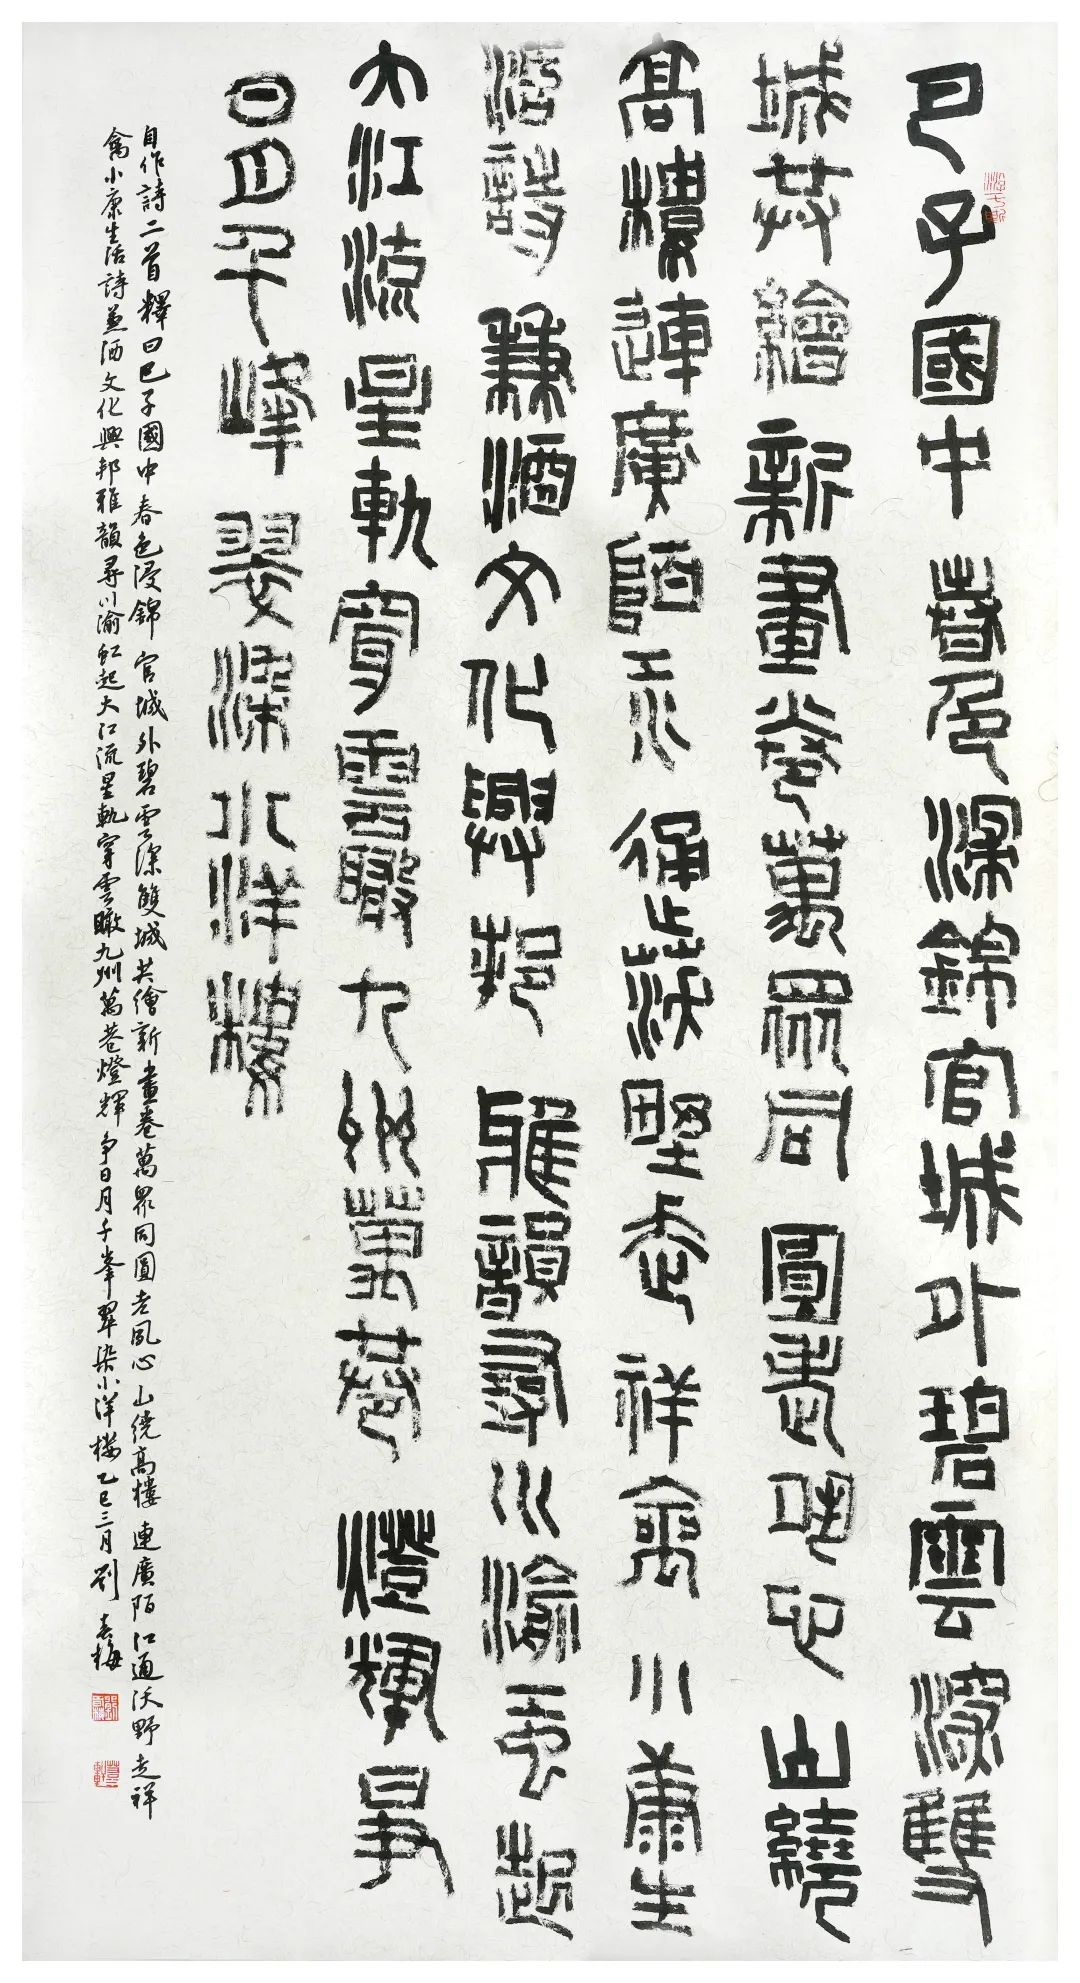 巴子國中春色浸錦官城外碧雲深雙
城共繪新畫卷萬眾同圓老夙心山繞
高樓連廣陌江通沃野走祥禽小康生
活詩兼酒文化興邦雅韻尋川渝虹起
大江流星軌穿雲瞰九州萬巷燈輝爭
日月千峰翠染小洋樓
自作詩二首釋曰巴子國中春色浸錦官城外碧雲深雙城共繪新畫卷萬眾同圓老夙心山繞高樓連廣陌江通沃野走祥
禽小康生活詩兼酒文化興邦雅韻尋川渝虹起大江流星軌穿雲瞰九州萬巷燈輝爭日月千峯翠染小洋樓乙巳三月劉春梅